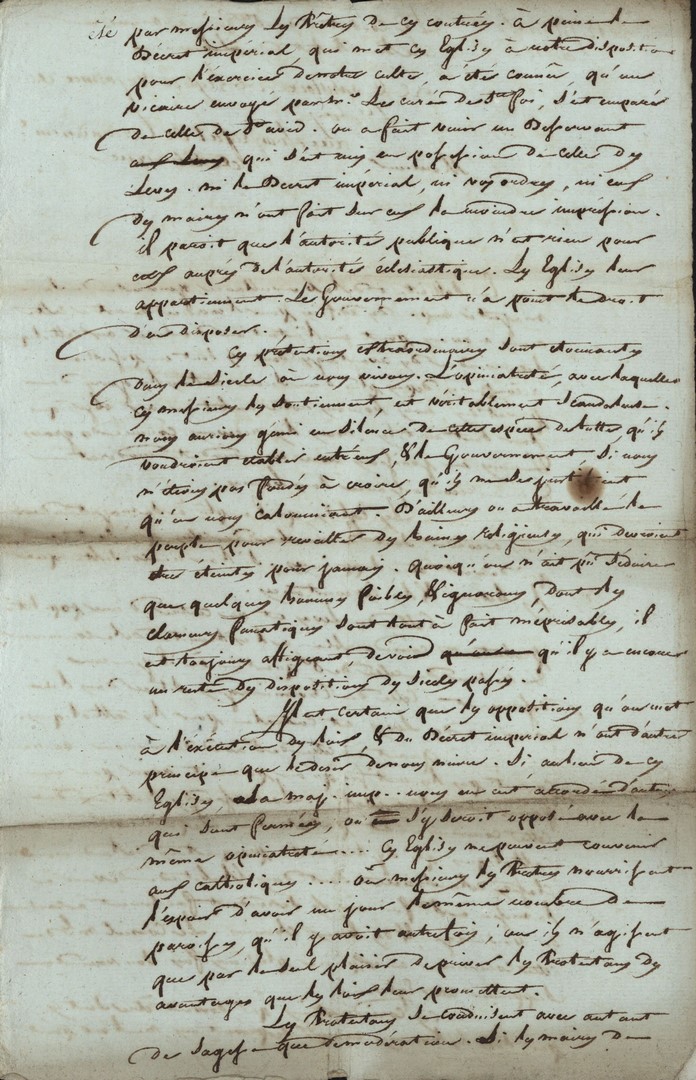 été par messieurs les Prêtres de ces contrées. à peine le
Décret impérial, qui met ces Eglises à notre disposition
pour l'exercice de notre culte, a été connu, qu'un
vicaire envoyé par Mr. Le curé de Ste foi, s'est emparé
de celle de St avid. on a fait venir un Desservant
qui s'est mis en possession de celle des
Leves. ni le Décret impérial, ni vos ordres, ni ceux
des maires n'ont fait sur eux la moindre impression.
il paroit que l'autorité publique n'est rien pour
eux auprès de l'autorité éclesiastique. Les Eglises leur
appartiennent. Le Gouvernement n'a point le droit
d'en disposer.
Ces prétentions extraordinaires sont étonnantes
dans le siecle où nous vivons. L'opiniatreté, avec laquelle
ces messieurs les soutiennent, est véritablement scandaleuse.
nous aurions gémi en silence de cette espèce de lutte, qu'ils
voudroient établir entr'eux, & le Gouvernement, si nous
n'étions pas fondés à croire, qu'ils ne se
qu'en nous calomniant. D'ailleurs on a travaillé le
peuple pour reveiller des haines religieuses, qui devroient
être éteintes pour jamais. quoiqu'on n'ait pû séduire
que quelques hommes foibles, & ignorans, dont les
clameurs fanatiques sont tout à fait méprisables, il
est toujours affligeant, de voir qu'il y a encore
un reste des dispositions des siecles passés.
Il est certain que les oppositions qu'on met
à l'exécution des loix & du Décret impérial n'ont d'autre
principe que le desir de nous nuire. Si au lieu de ces
Eglises, Sa maj. imp. nous en eut accordé d'autres
qui sont fermées, on s'y seroit opposé avec la
même opiniatreté.... Ces Eglises ne peuvent convenir
aux catholiques ..... où messieurs les Prêtres nourrissent
l'espoir d'avoir un jour le même nombre de
paroisses, qu'il y avoit autrefois; ou ils n'agissent
que par le seul plaisir de priver les Protestans des
avantages que les loix leur promettent.
Les Protestans se conduisent avec autant
de sagesse que de modération. Si les maires de